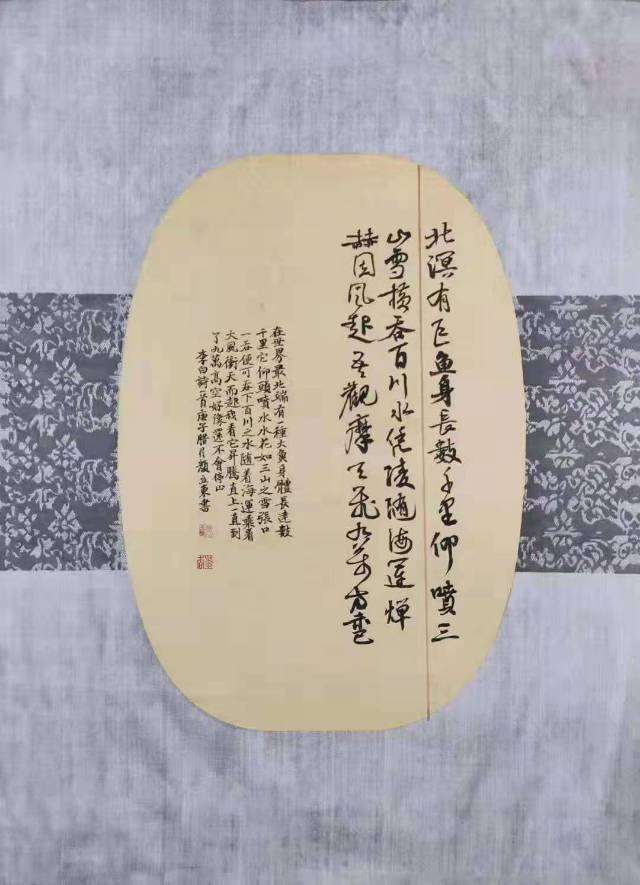 北溟有巨魚身長數千里仰噴三
山雪橫吞百川水凭陵隨海運燀
赫因風起吾觀摩天飛九萬方未已
在世界最北端有一種大魚身體長達數
千里它仰頭噴水水花如三山之雪張口
一吞便可吞下百川之水隨着海運乘着
大風衝天而起我看它昇騰直上一直到
了九萬高空好像還不會停止
李白詩一首庚子臘月顏立東書